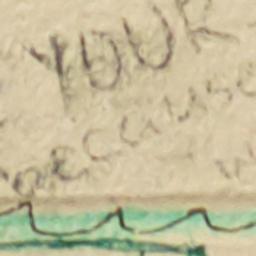 YOUR
because